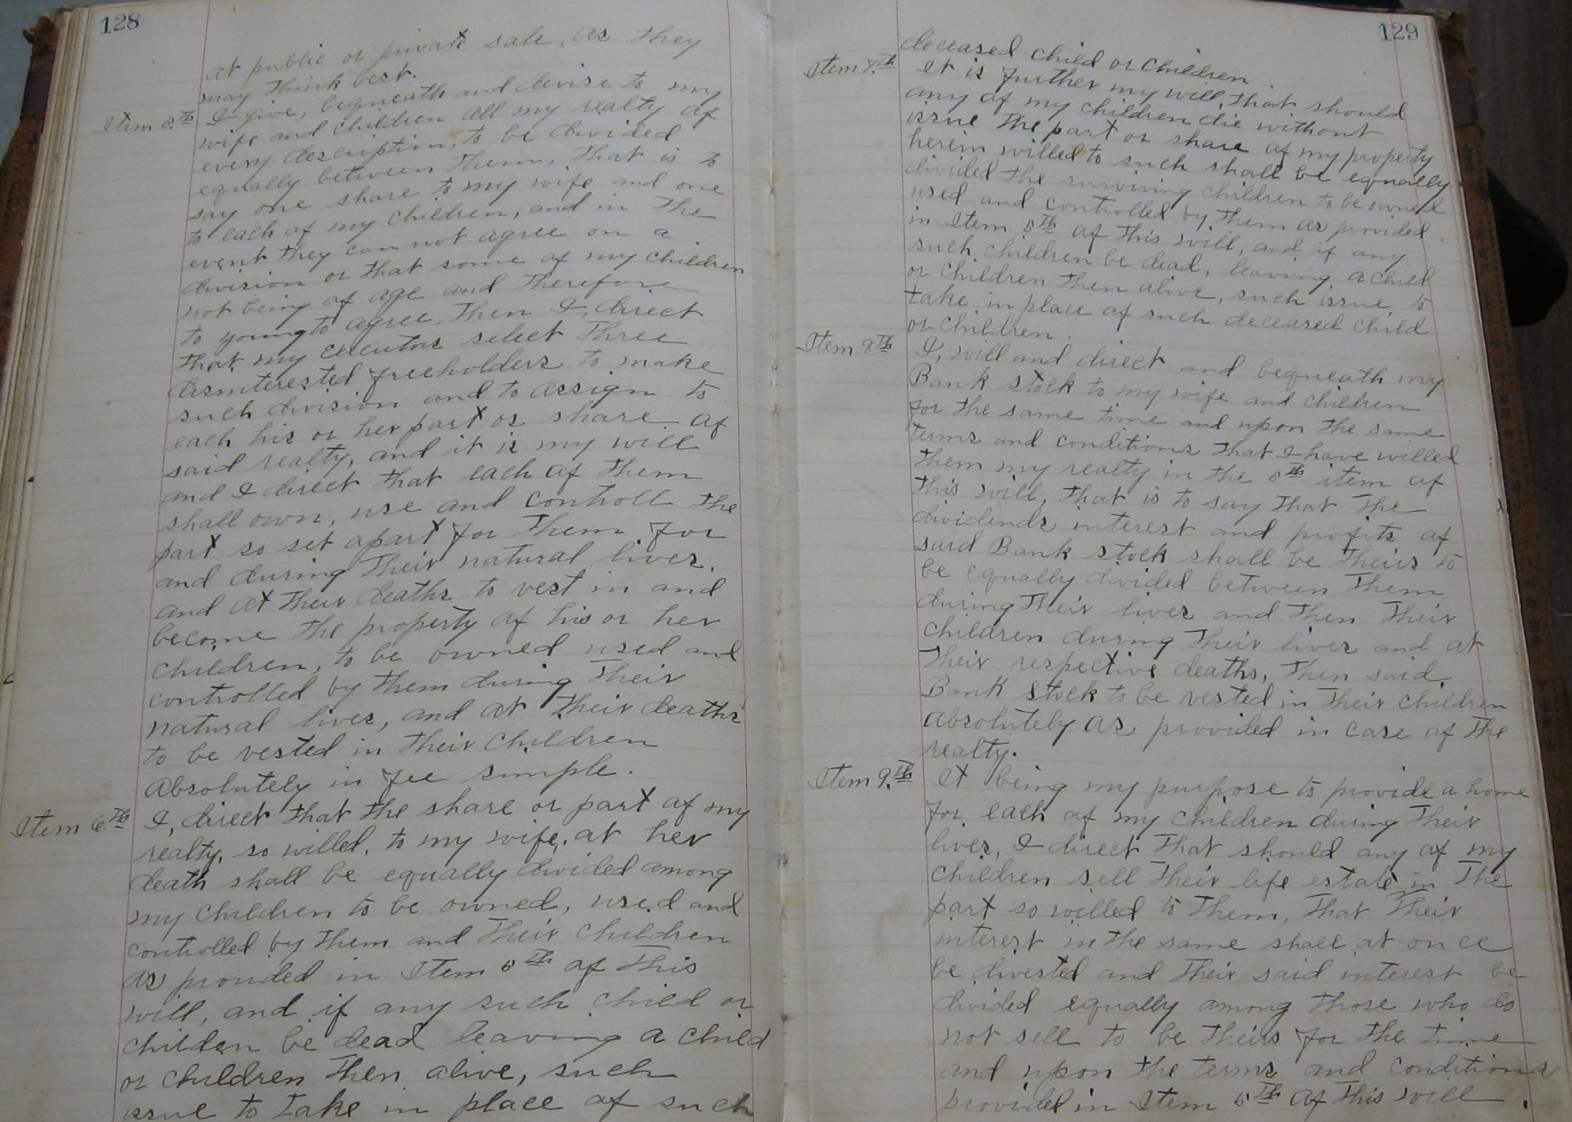 128
at public or private sale, as they
may think best.
Item 5.th I give, bequeath and devise to my
wife and children all my realty of
every description, to be divided
equally between them, that is to
say one share to my wife and one
to each of my children, and in the
event they can not agree on a
division or that some of my children
not being of age and therefore
to young to agree, then I, direct
that my executor select three
disinterested freeholders to make
such division and to assign to
each his or her part or share of
said realty, and it is my will
and I direct that each of them
shall own, use and controll the
part so set apart for them for
and during their natural lives,
and at their deaths to vest in and
become the property of his or her
children, to be owned used and
controlled by them during their
natural lives, and at their deaths
to be vested in their children
absolutely in fee simple.
Item 6th I, direct that the share or part of my
realty, so willed, to my wife, at her
death shall be equally divided among
my children to be owned, used and
controlled by them and their children
as provided in Item 5th of this
will, and if any such child or
children be dead leaving a child
or children then alive, such
issue to take in place of such
129
deceased child or children
Item 7.th It is further my will, that should
any of my children die without
issue the part or share of my property
herein willed to such shall be equally
divided the surviving children to be owned
used and controlled by them as provided
in Item 5th of this will, and if any
such children be dead, leaving a child
or children then alive, such issue to
take in place of such deceased child
or children.
Item 8th I, will and direct and bequeath my
Bank stock to my wife and children
for the same time and upon the same
terms and conditions that I have willed
them my realty in the 5th item of
this will, that is to say that the
dividends interest and profits of
said Bank stock shall be theirs to
be equally divided between them
during their lives and then their
children during their lives and at
their respective deaths, then said
Bank stock to be vested in their children
absolutely as provided in case of the
realty.
Item 9.th It being my purpose to provide a home
for each of my children during their
lives, I direct that should any of my
children sell their life estate in the
part so willed to them, that their
interest in the same shall at once
be divested and their said interest be
divided equally among those who do
not sell to be theirs for the time
and upon the terms and conditions
provided in Item 5th of this will.